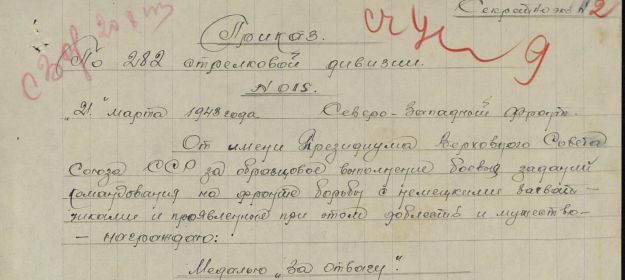 Секретно экз № 2
Приказ.
По 282 стрелковой дивизии.
№ 015.
„21“ марта 1943 года Северо-Западный фронт.
От имени Президиума Верховного Совета
Союза ССР за образцовое выполнение боевых заданий
командования на фронте борьбы с немецкими захват-
чиками и проявленные при этом доблесть и мужество-
- награждаю:
Медалью „За отвагу“.